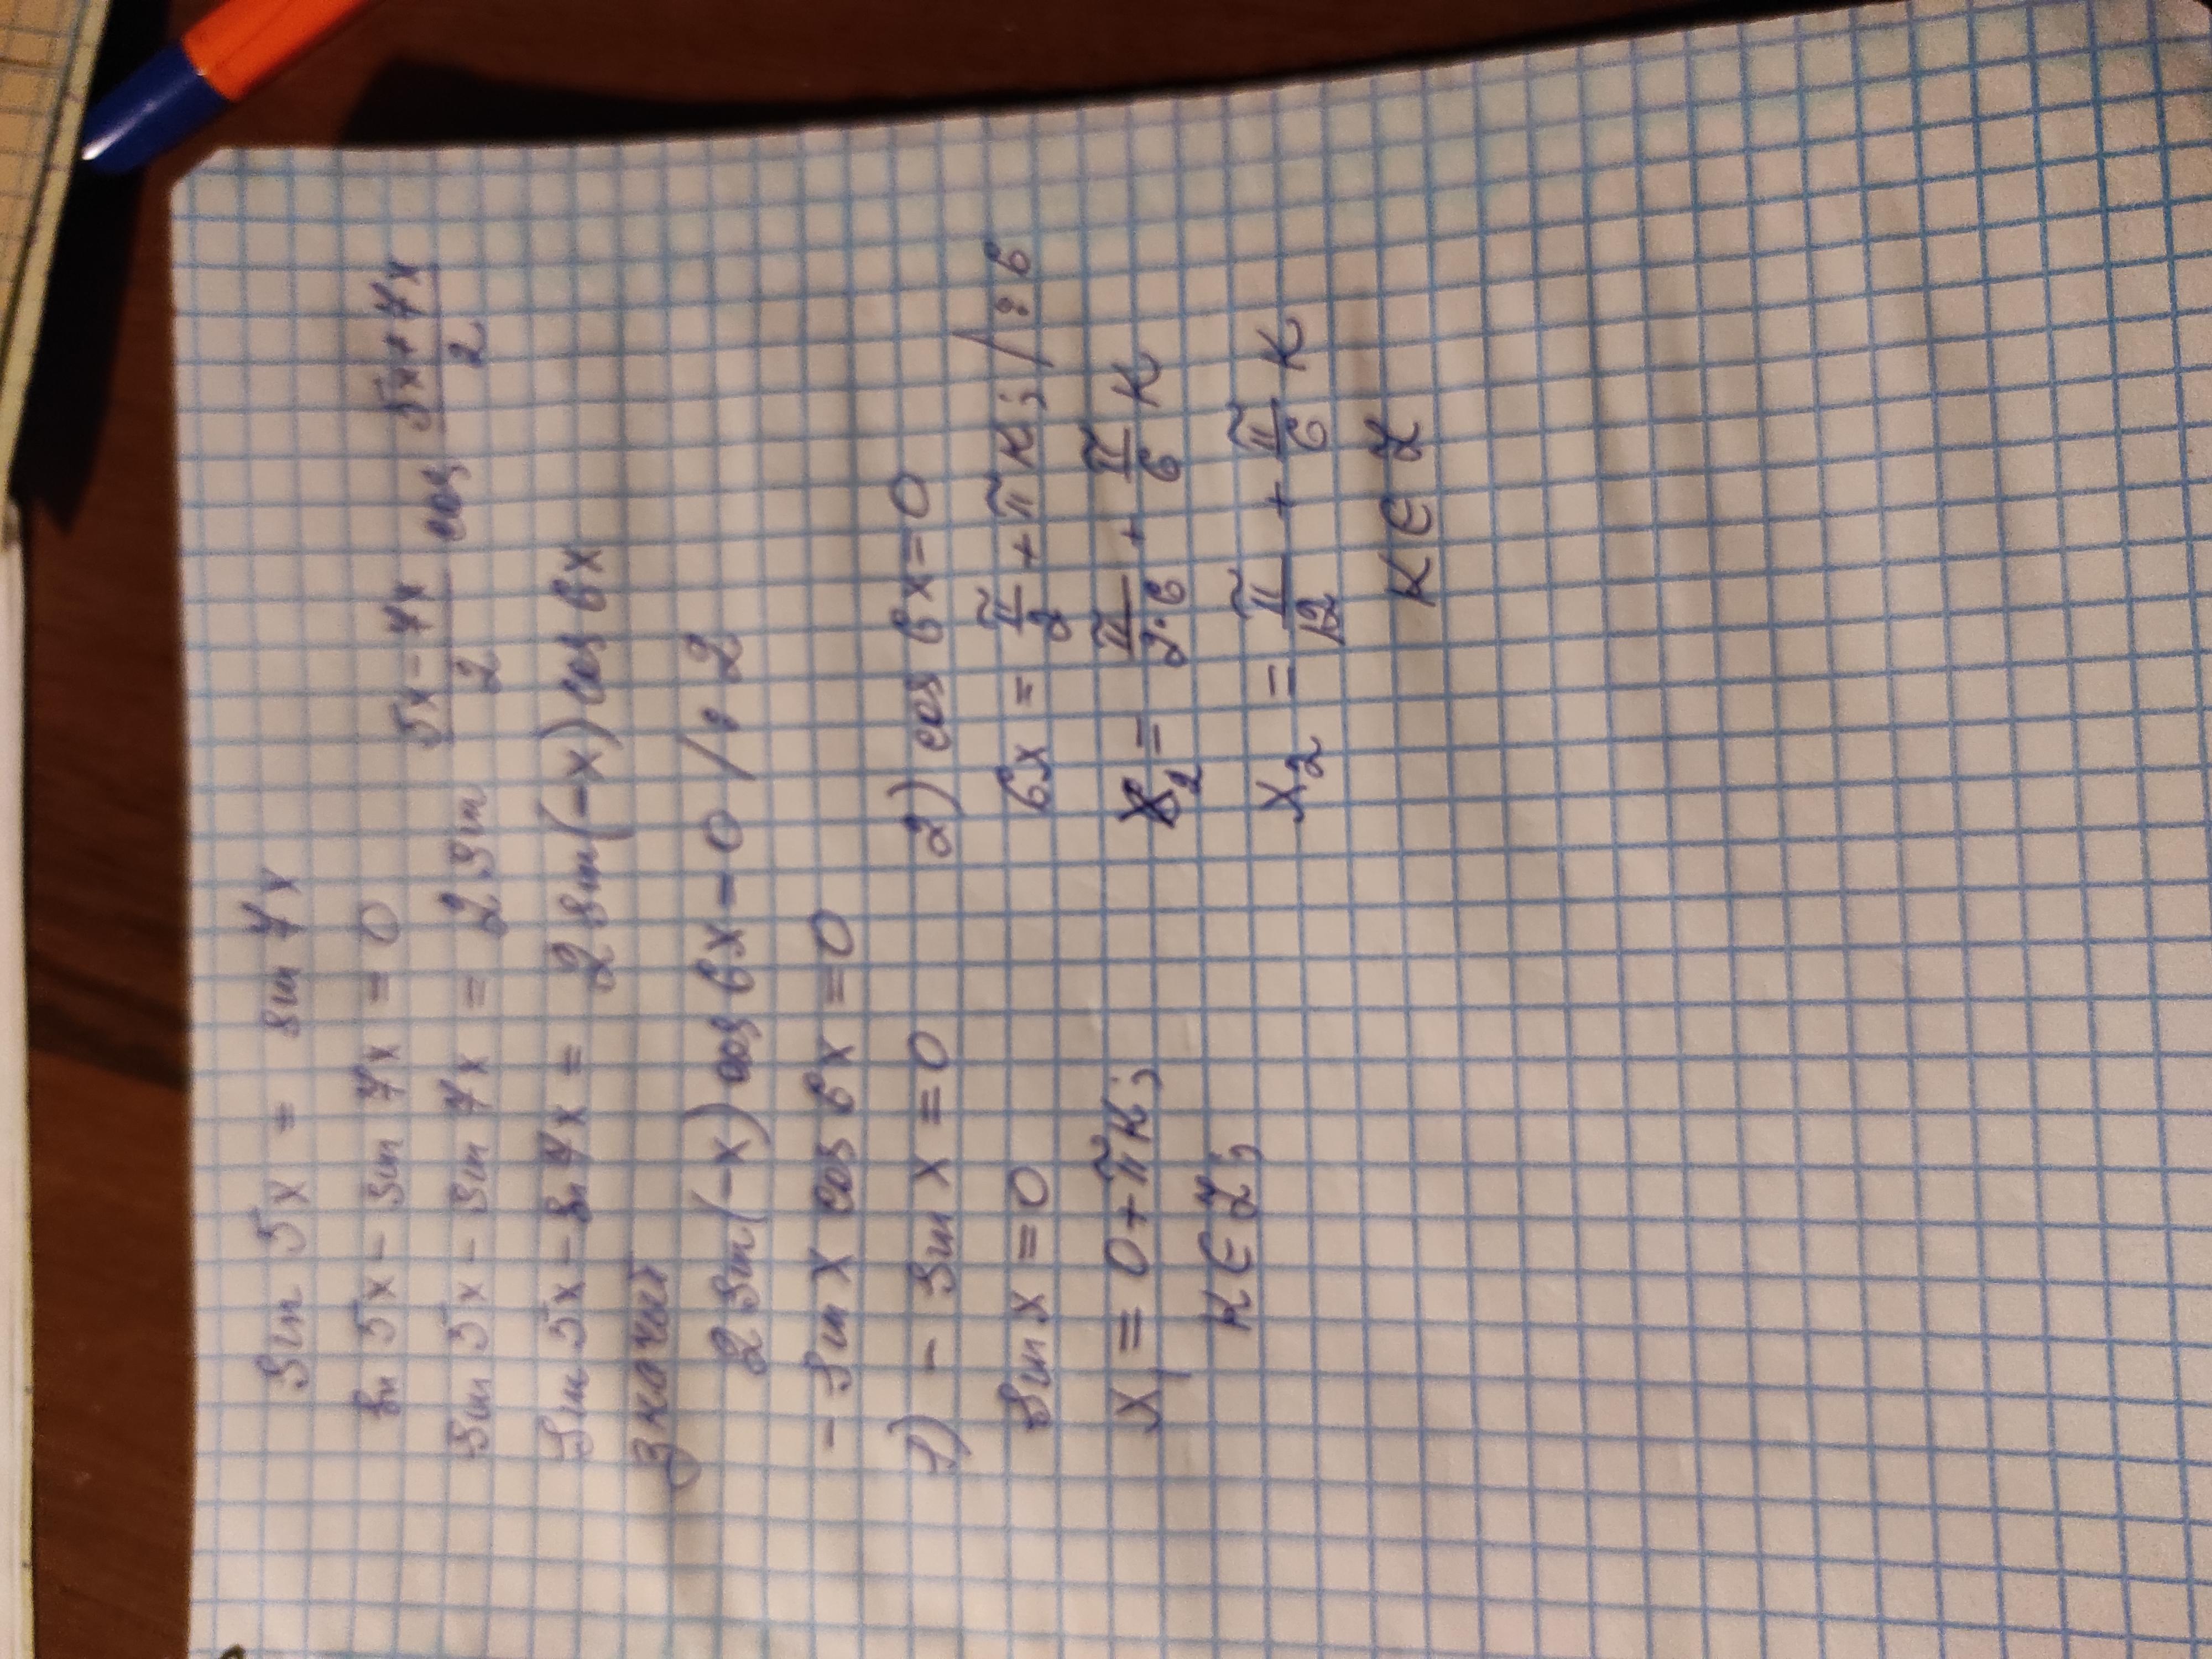 sin 5x = sin 7x
sin 5x - sin 7x = 0
sin 5x - sin 7x = 2 sin (5x - 7x)/2 cos (5x + 7x)/2
sin 5x - sin 7x = 2 sin(-x) cos 6x
Значит
2 sin(-x) cos 6x = 0 / : 2
- sin x cos 6x = 0
1) - sin x = 0
sin x = 0
x₁ = 0 + πк;
к ∈ Z;
2) cos 6x = 0
6x = π/2 + πк; / : 6
x₂ = π/(2·6) + π/6 к
x₂ = π/12 + π/6 к
к ∈ Z